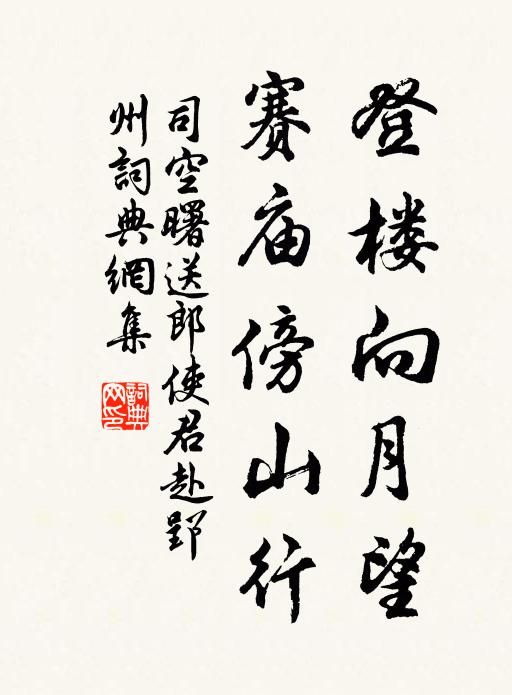 登楼向月望
赛庙傍山行
司空曙送郎使君赴郢
州詞典網集
詞典
网印